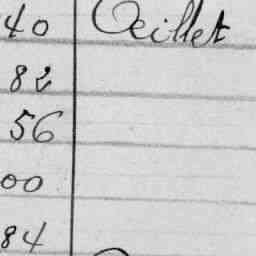 40 Œillet
82
56
00
84